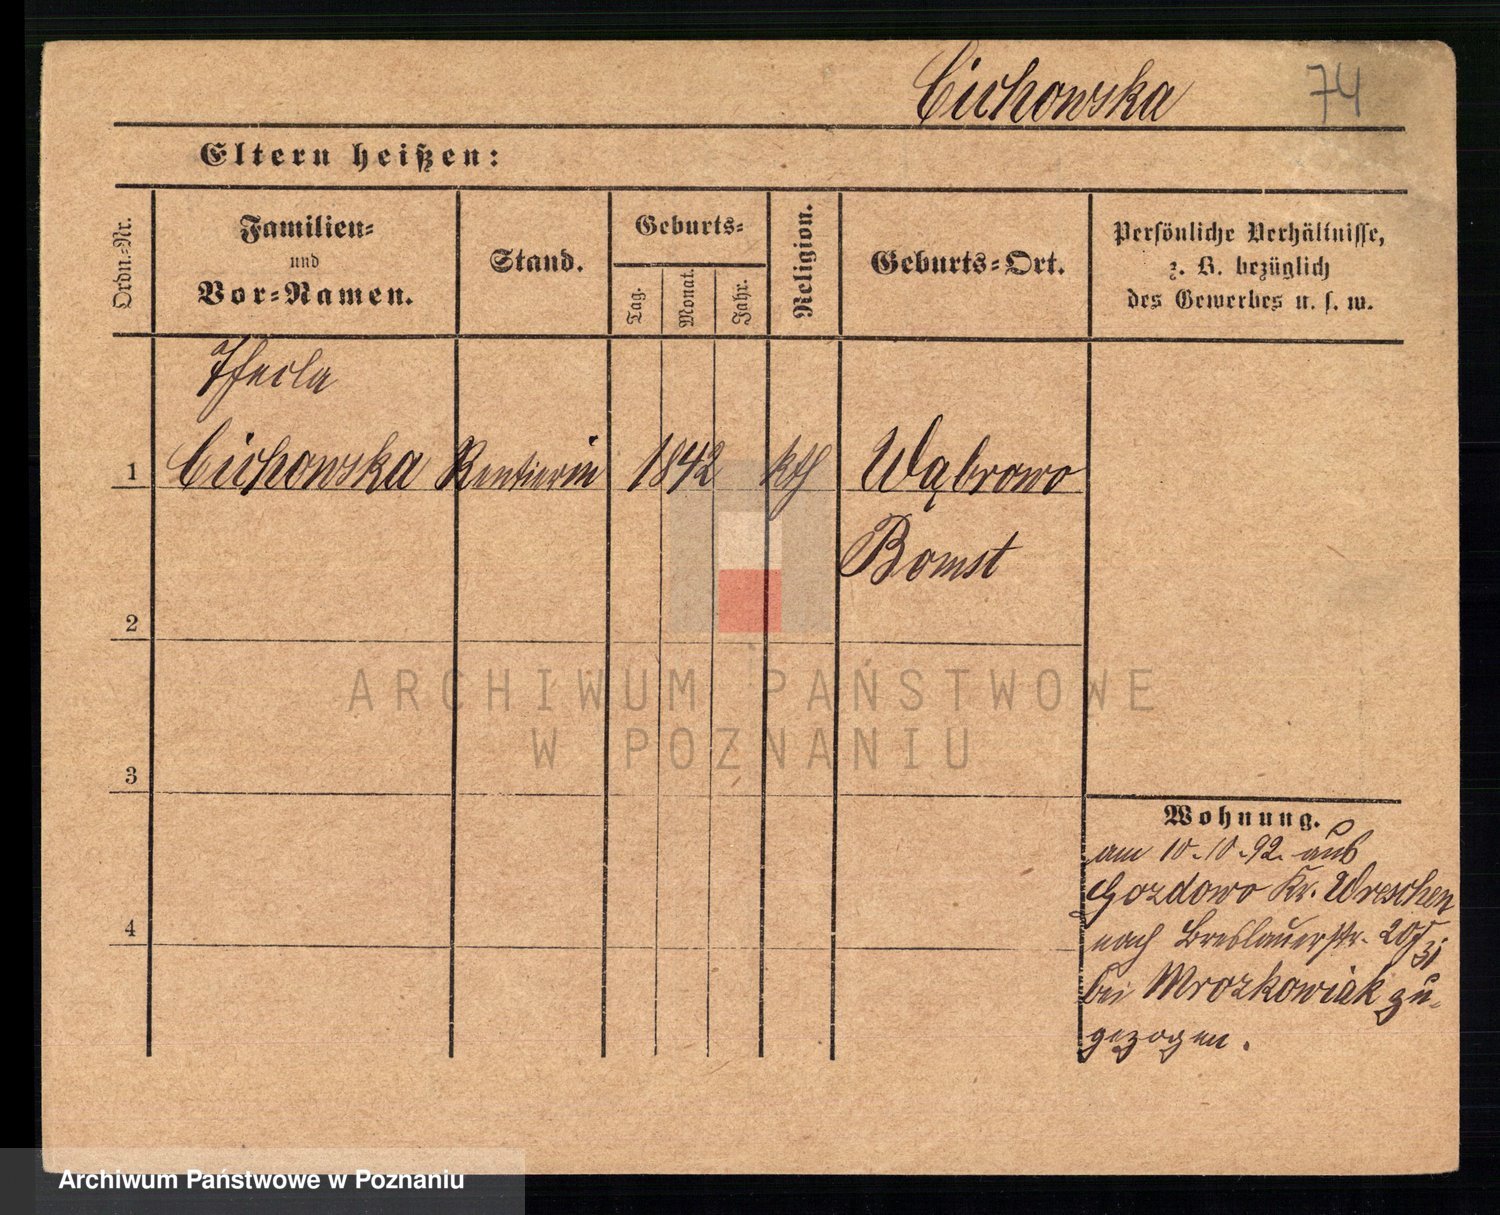 Cichowska
74
Eltern heißen:
Ordn.-Nr.
Familien-
und
Vor-Namen.
Stand.
Geburts-
Tag.
Monat.
Jahr.
Religion.
Geburts-Ort.
Persönliche Verhältnisse,
z. B. bezüglich
des Gewerbes u. s. w.
Thecla
1 Cichowska Rentierin 1842 kth Wąbrowo
Bomst
2
3
4
Wohnung.
am 10.10.92. aus
Gozdowo Kr. Wreschen
nach Breslauerstr. 20
bei Mrozkowiak zu-
gezogen.
ARCHIWUM PAŃSTWOWE
W POZNANIU
Archiwum Państwowe w Poznaniu